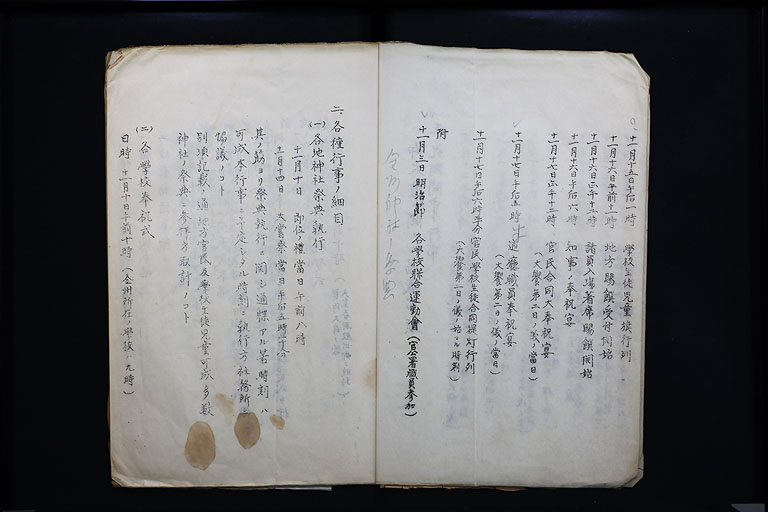 十一月十五日午后一時 學校生徒児童旗行列
十一月十六日午前十一時 地方賜饌受付開始
十一月十六日正午十二時 諸員入場着席賜饌開始
十一月十六日午后六時 知事ノ奉祝宴
十一月十七日正午十二時 官民合同大奉祝宴
(大饗第一日ノ儀ノ當日)
十一月十七日午后五時半 道廳職員奉祝宴
(大饗第二日ノ儀ノ當日)
十一月十七日午后六時半 官民學校生徒合同提灯行列
(大饗第一日ノ儀ノ始マル時刻)
附
十一月三日 明治節 各學校聯合運動會(官公署職員参加)
全州神社ノ祭典
二、各種行事ノ細目
(一) 各地神社祭典執行
十一月十日 即位ノ禮當日午前八時
十一月十四日 大嘗祭當日午后五時
其ノ筋ヨリ祭典執行ニ関シ通牒アル筈 時刻ハ
可成本行事ニ予定シタル時刻ニ執行方社務所ト
協議ノコト
別項記載ノ通地方官民及學校生徒児童可成多數
神社ノ祭典ニ参拝方取計フコト
(二) 各學校奉祝式
日時 十一月十日午前十時 (全州所在ノ學校ハ九時)